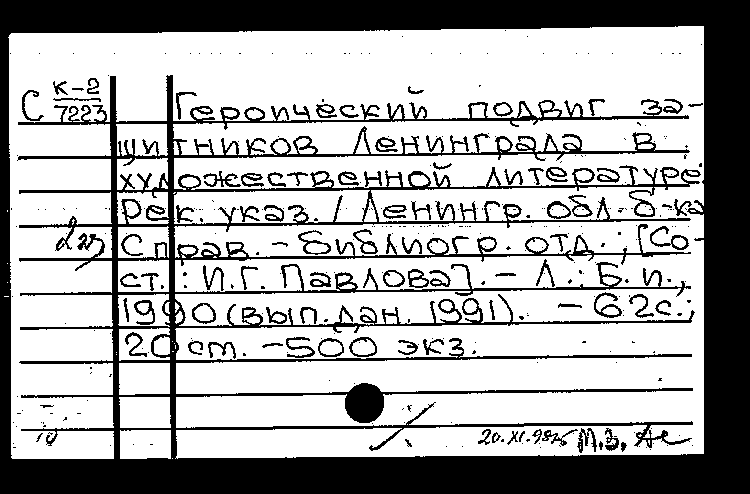 С К-2
7223
Героический подвиг за-
щитников Ленинграда в
художественной литературе:
Рек. указ. / Ленингр. обл. б-ка
Справ. - библиогр. отд.; [Со-
ст.: И.Г. Павлова]. - Л.: Б. и.,
1990 (вып. дан. 1991). - 62 с.;
20 см. - 500 экз.